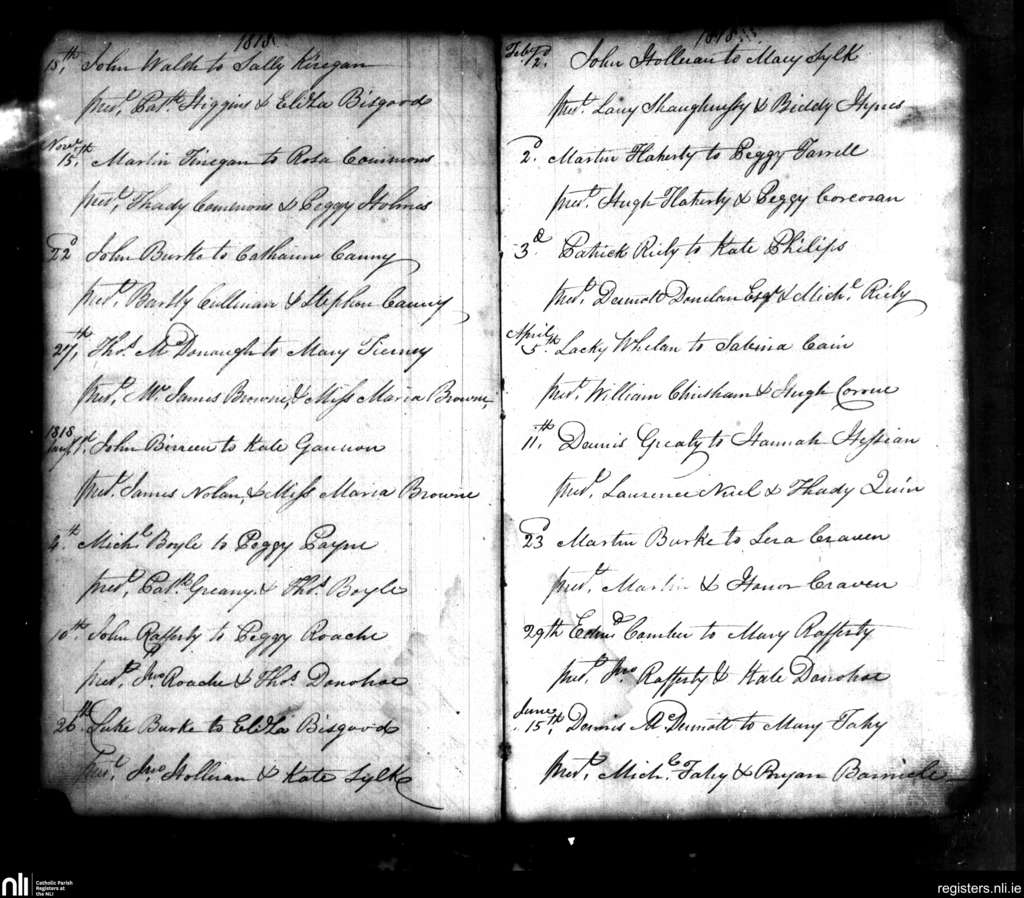 1818
15th John Walsh to Sally Kinegan
prest. Patk. Higgins & Eliza Bisgood
Novr. 15th. Martin Finegan to Rosa Commons
prest. Thady Commons & Peggy Holmes
22d John Burke to Catharine Canny
prest. Bartly Cullinan & Stephen Canny
27th. Thos. McDonaugh to Mary Tierney
prest. Mr. James Browne, & Miss Maria Browne,
1818
Jany. 1st. John to Kate Gannon
prest. James Nolan, & Miss Maria Browne
4th. Michl. Boyle to Peggy Payne
prest. Patk. Greany & Thos. Boyle
10th John Rafferty to Peggy Roache
prest. Jno Roache & Thos. Donohoe
26th. Luke Burke to Eliza Bisgood
Prest. Jno Holleran & Kate Sylk
1818
Feby. 2d. John Holleran to Mary Sylk
prest. Lacy Shaughnessy & Biddy Hynes
2d. Martin Flaherty to Peggy Farrell
prest. Hugh Flaherty & Peggy Corcoran
3d. Patrick Riely to Kate Philips
prest. Dermott Donelan Esqr. & Michl. Riely
April 5th. Lacky Whelan to Sabina Cain
prest. William Chisham & Hugh
11th. Dennis Grealy to Hannah Hessian
prest. Laurence & Thady Quin
23d Martin Burke to Lera Craven
prest. Martin & Honor Craven
29th Edmd. Comber to Mary Rafferty
prest. Jno Rafferty & Kate Donohoe
June 15th. Dennis McDermott to Mary Fahy
prest. Michl. Fahy & Bryan Barnicle
nli
Catholic Parish
Registers at
the NLI
registers.nli.ie